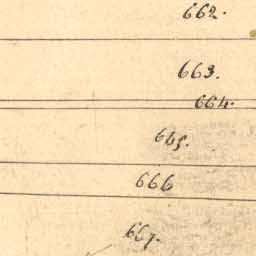 662.
663.
664.
665.
666
667.